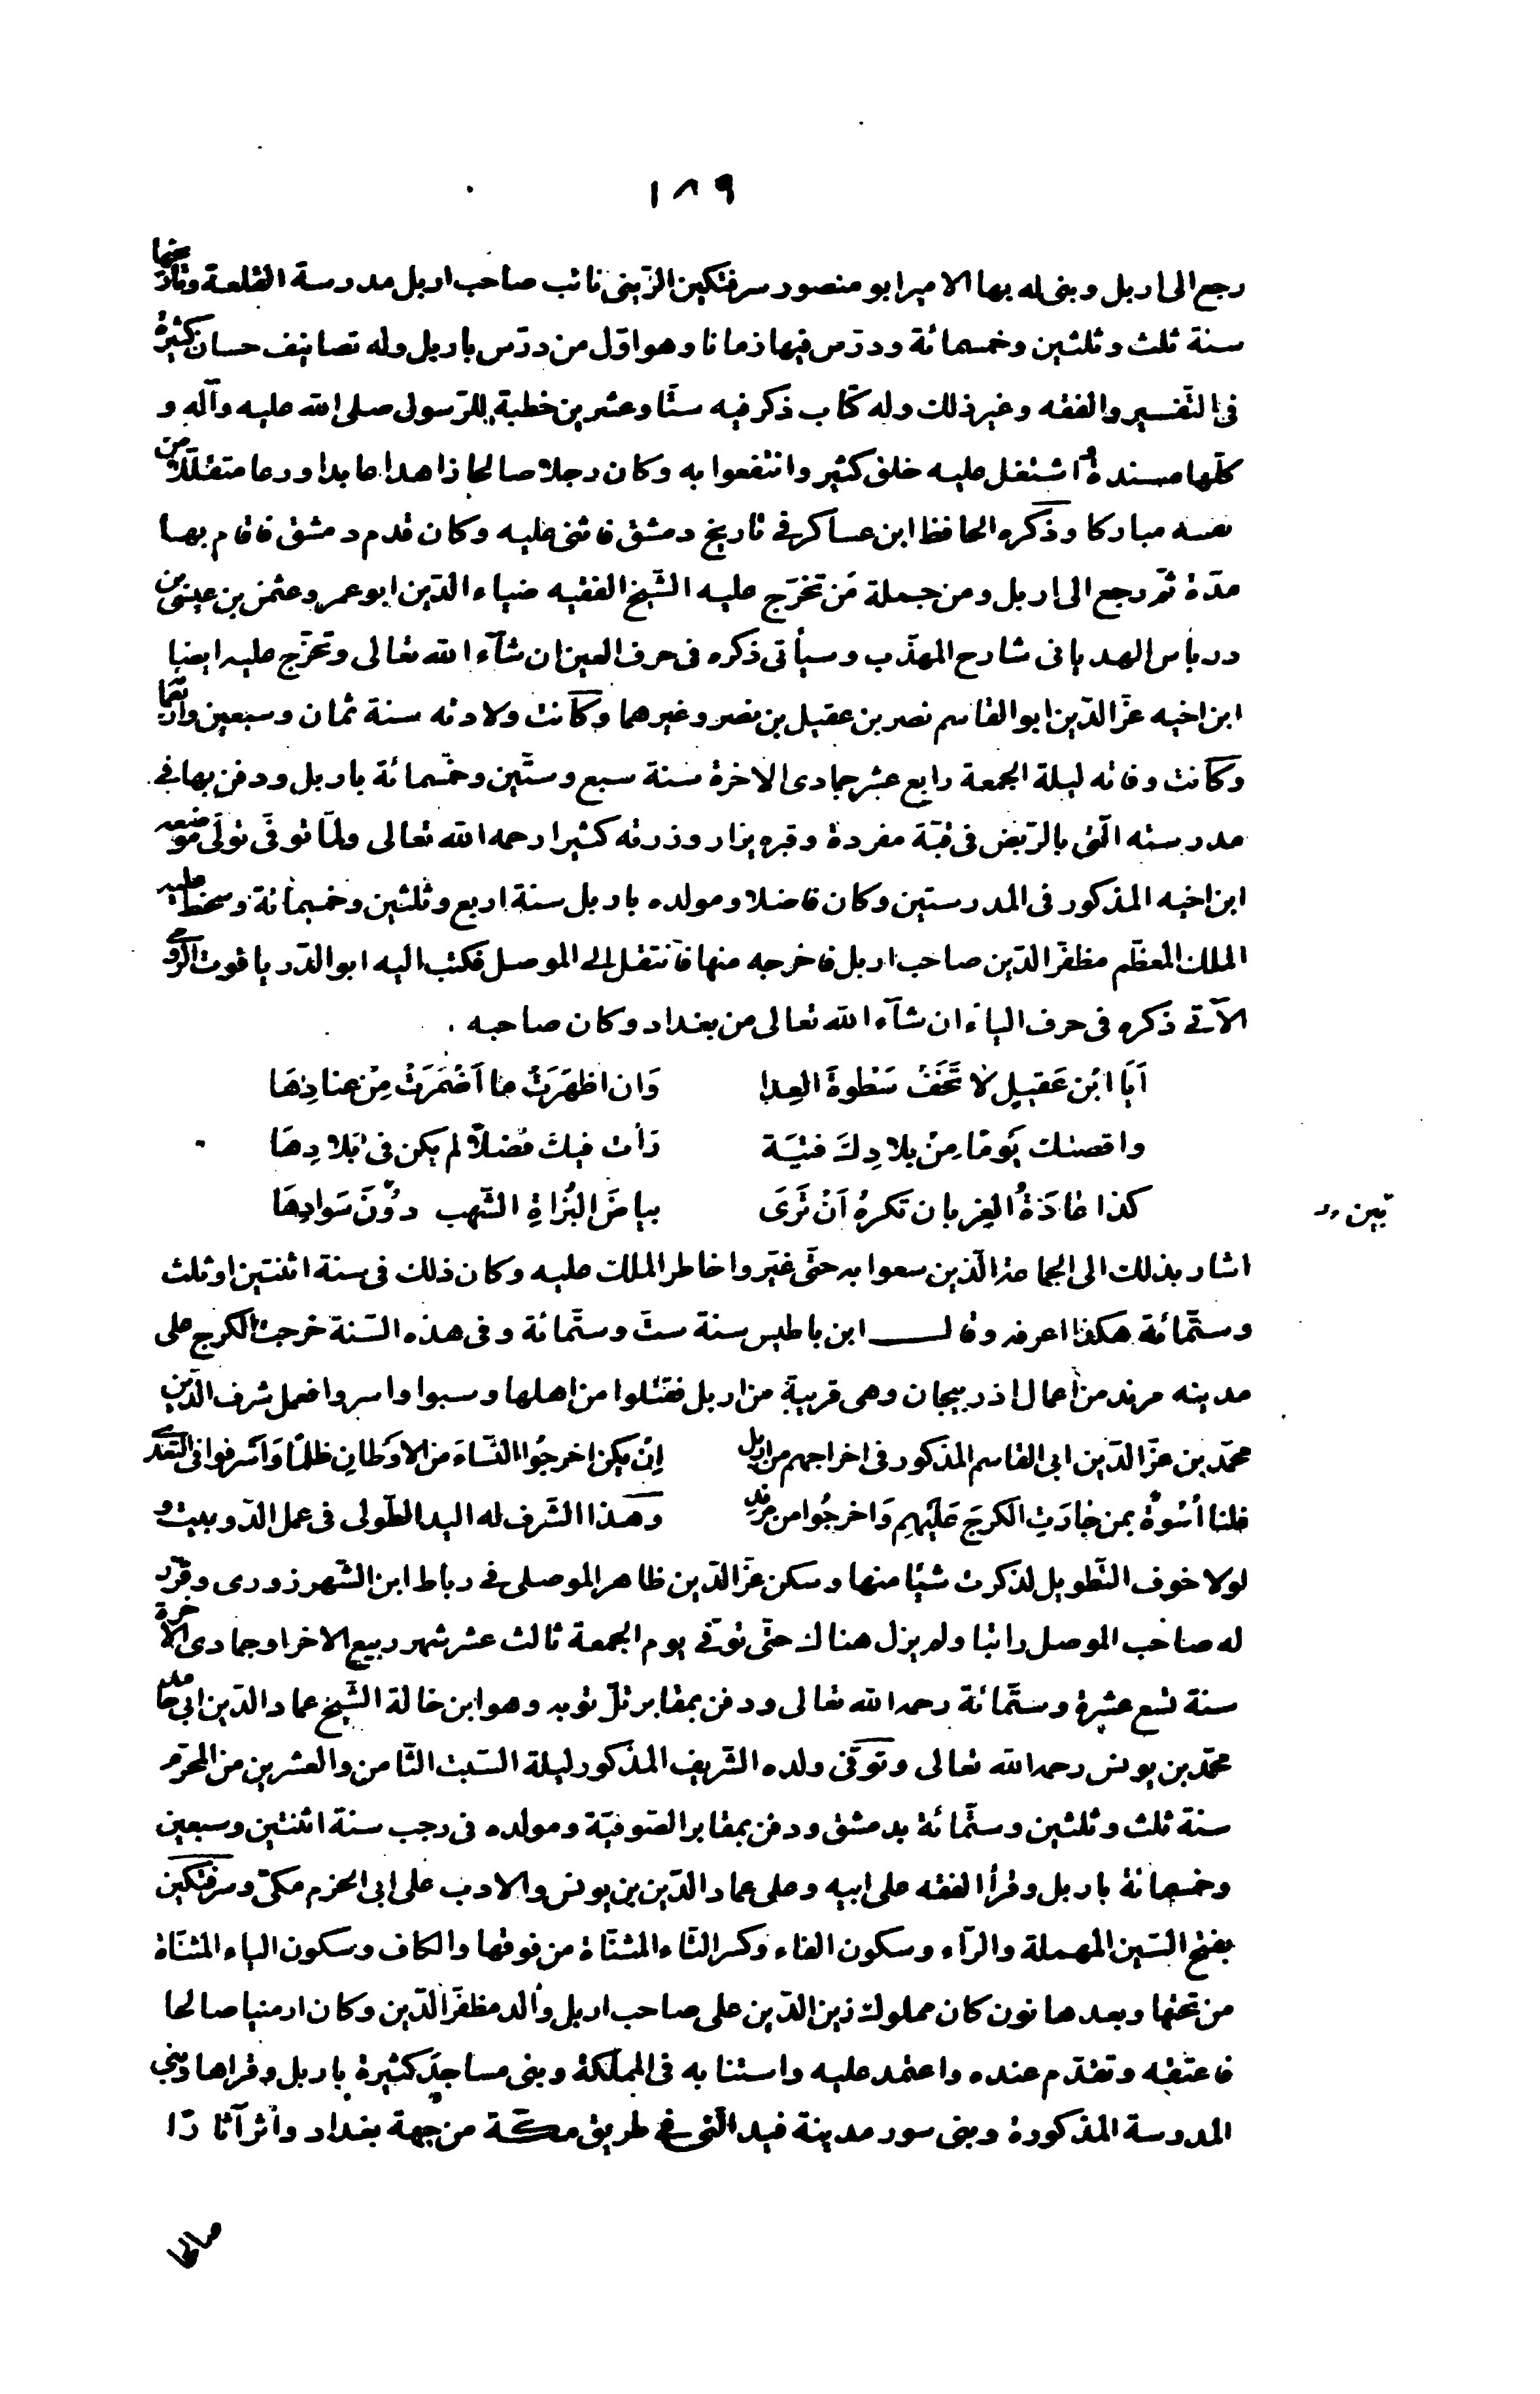 ١٨٩
رجع الى اربل وبنى له بها الامير ابو منصور سرفتكين الزّينى نائب صاحب اربل مدرسة القلعة وتاريخها
سنة ثلث وثلثين وخمسمائة ودرّس فيها زمانا وهو اوّل من درّس باربل وله تصانيف حسان كثيرة
فى التّفسير والفقه وغير ذلك وله كتاب ذكر فيه ستّا وعشرين خطبة للرّسول صلى الله عليه وآله و
كلّها مسندة اشتغل عليه خلق كثير وانتفعوا به وكان رجلا صالحا زاهدا عابدا ورعا متقلّلا من
نفسه مباركا وذكره الحافظ ابن عساكر فى تاريخ دمشق فاثنى عليه وكان قدم دمشق فاقام بها
مدّة ثمّ رجع الى اربل ومن جملة مَن تخرّج عليه الشّيخ الفقيه ضياء الدّين ابو عمرو عثمن بن عيسى بن
درباس الهدبانى شارح المهذّب وسيأتى ذكره فى حرف العين ان شآء الله تعالى وتخرّج عليه ايضا
ابن اخيه عزّ الدّين ابو القاسم نصر بن عقيل بن نصر وغيرهما وكانت ولادته سنة ثمان وسبعين واربعما
وكانت وفاته ليلة الجمعة رابع عشر جمادى الاخرة سنة سبع وستّين وخمسمائة باربل ودفن بها فى
مدرسته الّتى بالرّبض فى قبّة مفردة وقبره يزار وزرته كثيرا رحمه الله تعالى ولمّا توفّى تولّى موضعه
ابن اخيه المذكور فى المدرستين وكان فاضلا ومولده باربل سنة اربع وثلثين وخمسمائة وسخط عليه
الملك المعظّم مظفّر الدّين صاحب اربل فاخرجه منها فانتقل الى الموصل فكتب اليه ابو الدّر ياقوت الرّومى
الآتى ذكره فى حرف الياء ان شآء الله تعالى من بغداد وكان صاحبه .
اَيَا ابْن عَقيلٍ لا تَخَفْ سَطْوةَ العِدا وَان اظهَرَتْ ما اَضْمَرَتْ مِنْ عنادِهَا
واقصتك يَومًا مِنْ بلادِكَ فتيَة رَأت فيكَ فضلًا لم يكن فى بَلادِهَا
كذا عَادَةُ الغِربان تَكرهُ اَنْ تَرَى بياضَ البُزاةِ الشّهب دوُنَ سَوادِهَا
بين
اشار بذلك الى الجماعة الّذين سعوا به حتّى غيّروا خاطر الملك عليه وكان ذلك فى سنة اثنتين او ثلث
وستّمائة هكذا اعرفه وقال ابن باطيس سنة ستّ وستّمائة وفى هذه السّنة خرجت الكرج على
مدينه مرند من اعمال اذربيجان وهى قريبة من اربل فقتلوا من اهلها وسبوا واسروا فعمل شرف الدّين
محمّد بن عزّ الدّين ابى القاسم المذكور فى اخراجهم من اربل اِنْ يكن اخرجُوا النّساءَ من الاوطانِ ظلمًا وَاَسرفوا فى التعدّى
فلنا اُسْوةٌ بمن جارَتِ الكرجَ عَليْهِم وَاخرجُوا من مرند وهذا الشّرف له اليد الطّولى فى عمل الدّوبيت و
لولا خوف التّطويل لذكرت شيئا منها وسكن عزّ الدّين ظاهر الموصل فى رباط ابن الشّهرزورى وقرّر
له صاحب الموصل راتبا ولم يزل هناك حتّى توفّى يوم الجمعة ثالث عشر شهر ربيع الاخر او جمادى الاخرة
سنة تسع عشرة وستّمائة رحمه الله تعالى ودفن بمقابر تلّ توبه وهو ابن خالة الشّيخ عماد الدّين ابى حامد
محمّد بن يونس رحمه الله تعالى وتوفّى ولده الشّريف المذكور ليلة السّبت الثّامن والعشرين من المحرّم
سنة ثلث وثلثين وستّمائة بدمشق ودفن بمقابر الصّوفيّة ومولده فى رجب سنة اثنتين وسبعين
وخمسمائة باربل وقرأ الفقه على ابيه وعلى عماد الدّين بن يونس والادب على ابى الحزم مكىّ وسرفتكين
بفتح السّين المهملة والرّاء وسكون الفاء وكسر التّاء المثنّاة من فوقها والكاف وسكون الياء المثنّاة
من تحتها وبعدها نون كان مملوك زين الدّين على صاحب اربل والد مظفّر الدّين وكان ارمنيا صالحا
فاعتقه وتقدّم عنده واعتمد عليه واستنابه فى المملكة وبنى مساجد كثيرة باربل وقراها وبنى
المدرسة المذكورة وبنى سور مدينة فيد الّتى فى طريق مكّة من جهة بغداد واثر آثارًا
صالحا